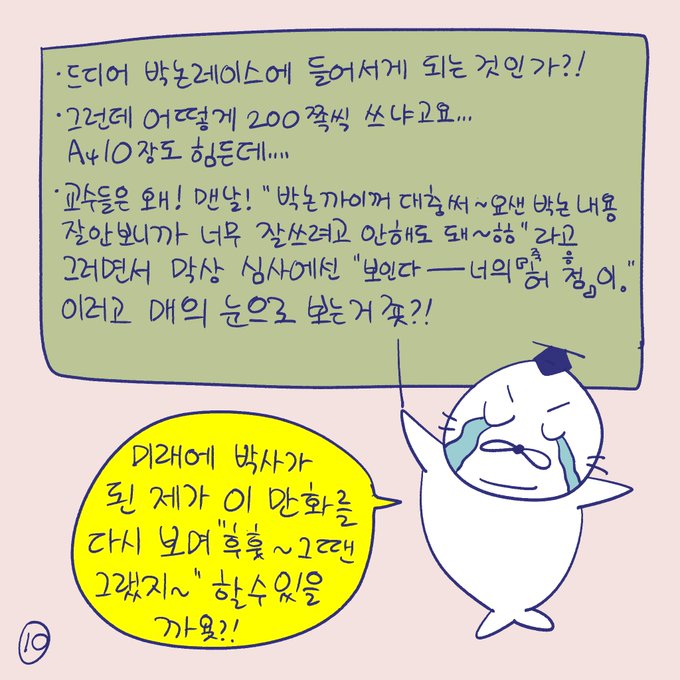 ·드디어 박논레이스에 들어서게 되는 것인가?!
·그런데 어떻게 200쪽씩 쓰냐고요...
A4 10장도 힘든데....
·교수들은 왜! 맨날! "박논까이꺼 대충써~요샌 박논내용
잘안보니까 너무 잘쓰려고 안해도 돼~ㅎㅎ"라고
그러면서 막상 심사에선 "보인다──너의『허점』이."
이러고 매의 눈으로 보는거죳?!
미래에 박사가
된 제가 이 만화를
다시 보며 "후훗~그땐
그랬지~" 할 수 있을
까욧?!
10